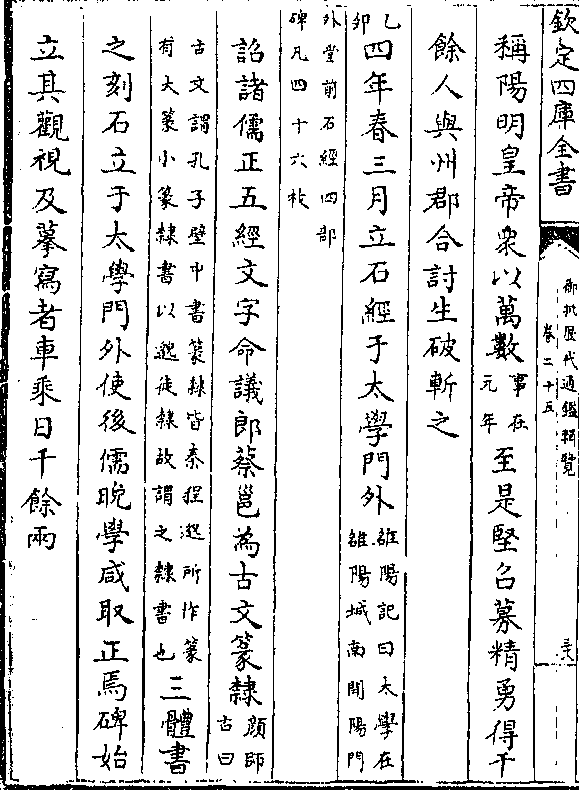 欽定四庫全書
御批歷代通鑑輯覽
卷二十五
稱陽明皇帝衆以萬數事在元年至是堅召募精勇得千
餘人與州郡合討生破斬之
乙卯四年春三月立石經于太學門外雒陽記曰太學在雒陽城南開陽門
外堂前石經四部碑凡四十六枚
詔諸儒正五經文字命議郎蔡邕為古文篆隸顔師古曰
古文謂孔子壁中書篆隸皆秦程邈所作篆有大篆小篆隸書以邈徒隸故謂之隸書也三體書
之刻石立于太學門外使後儒晚學咸取正焉碑始
立其觀視及摹寫者車乘日千餘兩